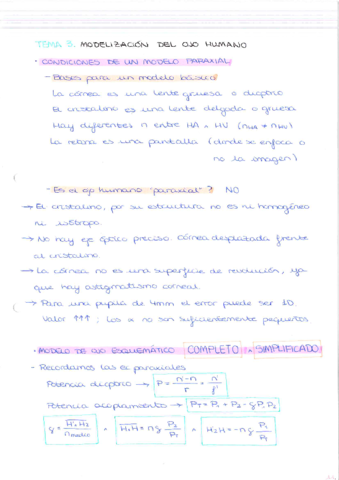 TEMA 3. MODELIZACIÓN DEL OJO HUMANO
· CONDICIONES DE UN MODELO PARAXIAL
- Bases para un modelo básico
La córnea es una lente gruesa o dioptrio
El cristalino es una lente delgada o gruesa
Hay diferentes n entre HA ∧ HV (nHA ≠ nHV)
La retina es una pantalla (donde se enfoca o
no la imagen)
- Es el ojo humano "paraxial"? NO
→ El cristalino, por su estructura no es ni homogéneo
ni isótropo.
→ No hay eje óptico preciso. Córnea desplazada frente
al cristalino
→ La córnea no es una superficie de revolución, ya
que hay astigmatismo corneal.
→ Para una pupila de 4mm el error puede ser 1D.
Valor ↑↑↑; los α no son suficientemente pequeños
· MODELO DE OJO ESQUEMÁTICO COMPLETO ∧ SIMPLIFICADO
- Recordamos las ec paraxiales
Potencia dioptrio → P = n'-n / r = n' / f'
Potencia acoplamiento → PT = P1 + P2 - δP1P2
δ = H1'H2 / nmedio ∧ H1H = nδ P2 / PT ∧ H2'H' = -n'δ P1 / PT